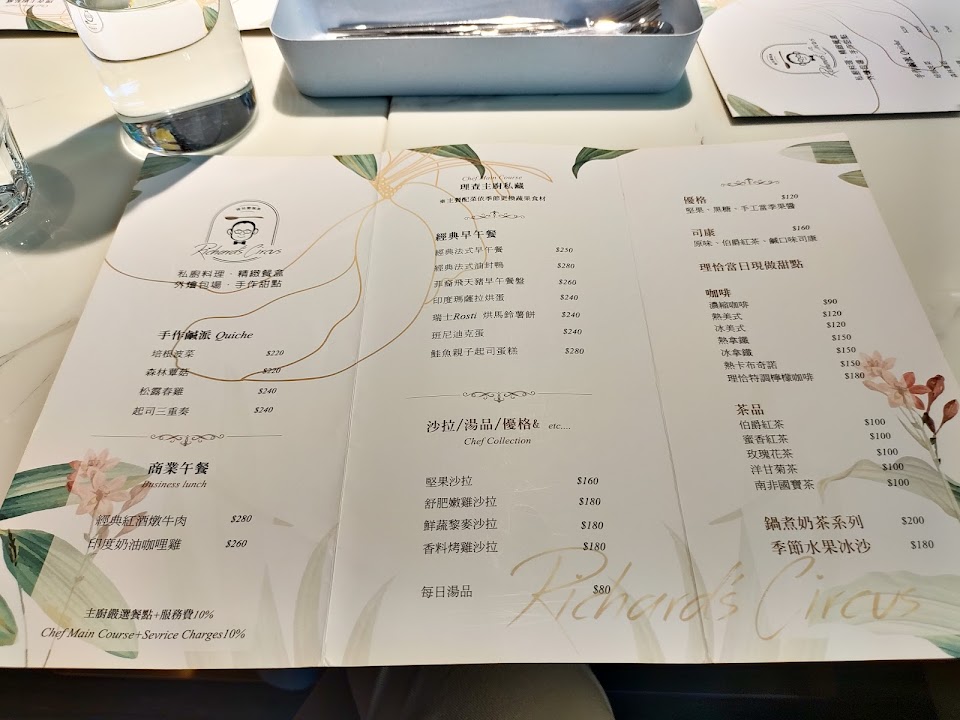 Richard's Circus
私廚料理、精緻餐盒
外燴包場、手作甜點
手作鹹派 Quiche
培根菠菜 $220
森林蕈菇 $220
松露春雞 $240
起司三重奏 $240
商業午餐
Business lunch
經典紅酒燉牛肉 $280
印度奶油咖哩雞 $260
主廚嚴選餐點+服務費10%
Chef Main Course+Sevrice Charges10%
Chef Main Course
理查主廚私藏
※主餐配菜依季節更換蔬菜食材
經典早午餐
經典法式早午餐 $250
經典法式油封鴨 $280
菲裔飛天豬早午餐盤 $260
印度瑪薩拉烘蛋 $240
瑞士Rosti 烘馬鈴薯餅 $240
班尼迪克蛋 $240
鮭魚親子起司蛋糕 $280
沙拉/湯品/優格& etc....
Chef Collection
堅果沙拉 $160
舒肥嫩雞沙拉 $180
鮮蔬藜麥沙拉 $180
香料烤雞沙拉 $180
每日湯品 $80
優格 $120
堅果、黑糖、手工當季果醬
司康 $160
原味、伯爵紅茶、鹹口味司康
理恰當日現做甜點
咖啡
濃縮咖啡 $90
熱美式 $120
冰美式 $120
熱拿鐵 $150
冰拿鐵 $150
熱卡布奇諾 $150
理恰特調檸檬咖啡 $180
茶品
伯爵紅茶 $100
蜜香紅茶 $100
玫瑰花茶 $100
洋甘菊茶 $100
南非國寶茶 $100
鍋煮奶茶系列 $200
季節水果冰沙 $180
Richard's Circus
Richard's Circus
私廚料理、精緻餐盒
外燴包場、手作甜點